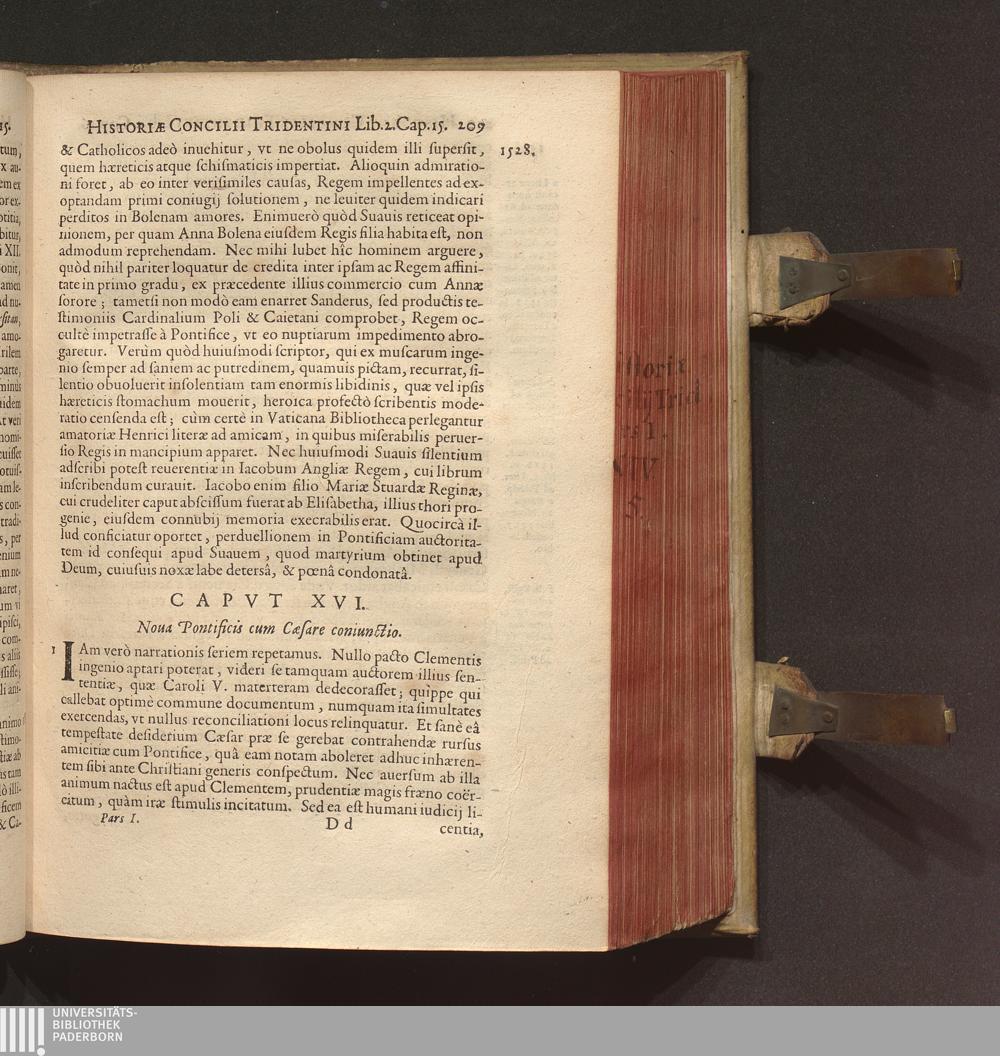 HISTORIÆ CONCILII TRIDENTINI Lib.2.Cap.15. 209
1528.
& Catholicos adeò inuehitur, vt ne obolus quidem illi superſit,
quem hæreticis atque ſchiſmaticis impertiat. Alioquin admiratio-
ni foret, ab eo inter veriſimiles cauſas, Regem impellentes ad ex-
optandam primi coniugij ſolutionem, ne leuiter quidem indicari
perditos in Bolenam amores. Enimuerò quòd Suauis reticeat opi-
nionem, per quam Anna Bolena eiuſdem Regis filia habita eſt, non
admodum reprehendam. Nec mihi lubet hîc hominem arguere,
quòd nihil pariter loquatur de credita inter ipſam ac Regem affini-
tate in primo gradu, ex præcedente illius commercio cum Annæ
ſorore; tametſi non modò eam enarret Sanderus, ſed productis te-
ſtimoniis Cardinalium Poli & Caietani comprobet, Regem oc-
cultè impetraſſe à Pontifice, vt eo nuptiarum impedimento abro-
garetur. Verùm quòd huiuſmodi ſcriptor, qui ex muſcarum inge-
nio ſemper ad ſaniem ac putredinem, quamuis pictam, recurrat, ſi-
lentio obuoluerit inſolentiam tam enormis libidinis, quæ vel ipſis
hæreticis ſtomachum mouerit, heroica profectò ſcribentis mode-
ratio cenſenda eſt; cùm certè in Vaticana Bibliotheca perlegantur
amatoriæ Henrici literæ ad amicam, in quibus miſerabilis peruer-
ſio Regis in mancipium apparet. Nec huiuſmodi Suauis ſilentium
adſcribi poteſt reuerentiæ in Iacobum Angliæ Regem, cui librum
inſcribendum curauit. Iacobo enim filio Mariæ Stuardæ Reginæ,
cui crudeliter caput abſciſſum fuerat ab Eliſabetha, illius thori pro-
genie, eiuſdem connubij memoria execrabilis erat. Quocircà il-
lud conficiatur oportet, perduellionem in Pontificiam auctorita-
tem id conſequi apud Suauem, quod martyrium obtinet apud
Deum, cuiuſuis noxæ labe deterſâ, & pœnâ condonatâ.
CAPVT XVI.
Noua Pontificis cum Cæſare coniunctio.
1 IAm verò narrationis ſeriem repetamus. Nullo pacto Clementis
ingenio aptari poterat, videri ſe tamquam auctorem illius ſen-
tentiæ, quæ Caroli V. materteram dedecoraſſet; quippe qui
callebat optimè commune documentum, numquam ita ſimultates
exercendas, vt nullus reconciliationi locus relinquatur. Et ſanè eâ
tempeſtate deſiderium Cæſar præ ſe gerebat contrahendæ rurſus
amicitiæ cum Pontifice, quâ eam notam aboleret adhuc inhæren-
tem ſibi ante Chriſtiani generis conſpectum. Nec auerſum ab illa
animum nactus eſt apud Clementem, prudentiæ magis fræno coër-
citum, quàm iræ ſtimulis incitatum. Sed ea eſt humani iudicij li-
Pars I. D d centia,
UNIVERSITÄTS-
BIBLIOTHEK
PADERBORN